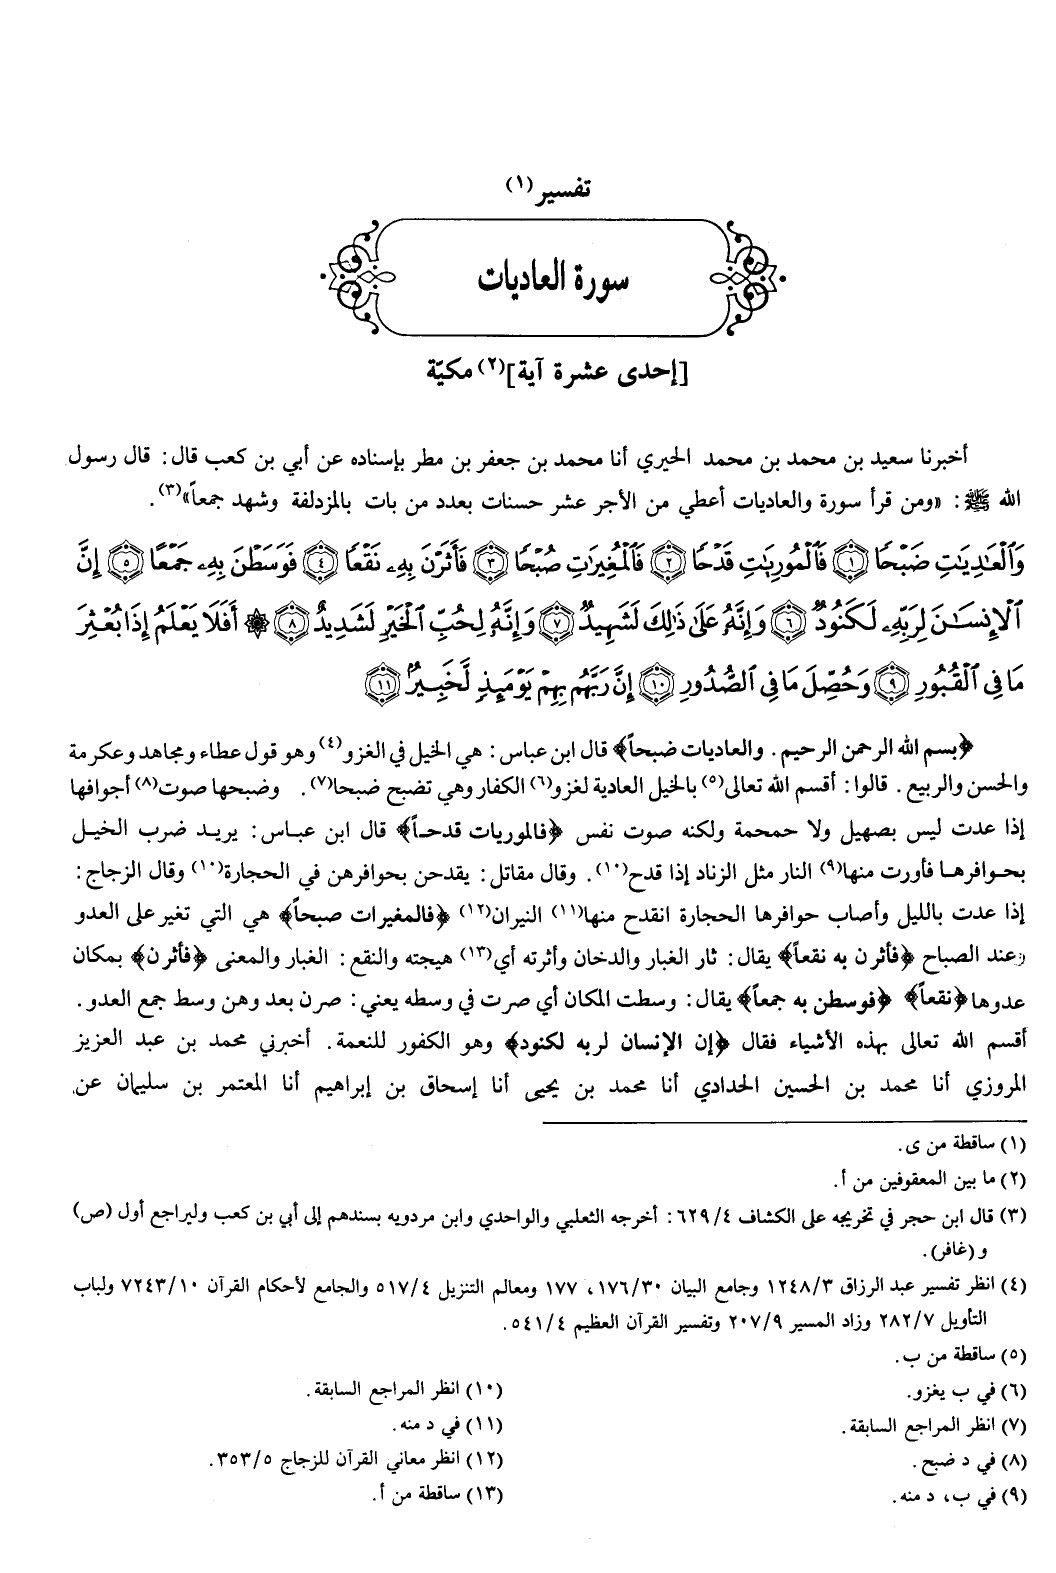 تفسير (١)
سورة العاديات
[إحدى عشرة آية](٢) مكيّة
أخبرنا سعيد بن محمد بن محمد الحيري أنا محمد بن جعفر بن مطر بإسناده عن أبي بن كعب قال: قال رسول
الله ﷺ: «ومن قرأ سورة والعاديات أعطي من الأجر عشر حسنات بعدد من بات بالمزدلفة وشهد جمعاً»(٣).
وَٱلْعَٰدِيَٰتِ ضَبْحًا ١ فَٱلْمُورِيَٰتِ قَدْحًا ٢ فَٱلْمُغِيرَٰتِ صُبْحًا ٣ فَأَثَرْنَ بِهِۦ نَقْعًا ٤ فَوَسَطْنَ بِهِۦ جَمْعًا ٥ إِنَّ
ٱلْإِنسَٰنَ لِرَبِّهِۦ لَكَنُودٌ ٦ وَإِنَّهُۥ عَلَىٰ ذَٰلِكَ لَشَهِيدٌ ٧ وَإِنَّهُۥ لِحُبِّ ٱلْخَيْرِ لَشَدِيدٌ ٨ ۞ أَفَلَا يَعْلَمُ إِذَا بُعْثِرَ
مَا فِى ٱلْقُبُورِ ٩ وَحُصِّلَ مَا فِى ٱلصُّدُورِ ١٠ إِنَّ رَبَّهُم بِهِمْ يَوْمَئِذٍ لَّخَبِيرٌۢ ١١
﴿بسم الله الرحمن الرحيم. والعاديات ضبحاً﴾ قال ابن عباس: هي الخيل في الغزو(٤) وهو قول عطاء ومجاهد وعكرمة
والحسن والربيع. قالوا: أقسم الله تعالى(٥) بالخيل العادية لغزو(٦) الكفار وهي تضبح ضبحا(٧). وضبحها صوت(٨) أجوافها
إذا عدت ليس بصهيل ولا حمحمة ولكنه صوت نفس ﴿فالموريات قدحـاً﴾ قال ابن عباس: يريد ضرب الخيل
بحوافرها فأورت منها(٩) النار مثل الزناد إذا قدح(١٠). وقال مقاتل: يقدحن بحوافرهن في الحجارة(١٠) وقال الزجاج:
إذا عدت بالليل وأصاب حوافرها الحجارة انقدح منها(١١) النيران(١٢) ﴿فالمغيرات صبحاً﴾ هي التي تغير على العدو
عند الصباح ﴿فأثرن به نقعاً﴾ يقال: ثار الغبار والدخان وأثرته أي(١٣) هيجته والنقع: الغبار والمعنى ﴿فأثرن﴾ بمكان
عدوها ﴿نقعاً﴾ ﴿فوسطن به جمعاً﴾ يقال: وسطت المكان أي صرت في وسطه يعني: صرن بعد وهن وسط جمع العدو.
أقسم الله تعالى بهذه الأشياء فقال ﴿إن الإنسان لربه لكنود﴾ وهو الكفور للنعمة. أخبرني محمد بن عبد العزيز
المروزي أنا محمد بن الحسين الحدادي أنا محمد بن يحيى أنا إسحاق بن إبراهيم أنا المعتمر بن سليمان عن
(١) ساقطة من ى.
(٢) ما بين المعقوفين من أ.
(٣) قال ابن حجر في تخريجه على الكشاف ٦٢٩/٤: أخرجه الثعلبي والواحدي وابن مردويه بسندهم إلى أبي بن كعب وليراجع أول (ص)
و (غافر).
(٤) انظر تفسير عبد الرزاق ١٢٤٨/٣ وجامع البيان ١٧٦/٣٠، ١٧٧ ومعالم التنزيل ٥١٧/٤ والجامع لأحكام القرآن ٧٢٤٣/١٠ ولباب
التأويل ٢٨٢/٧ وزاد المسير ٢٠٧/٩ وتفسير القرآن العظيم ٥٤١/٤.
(٥) ساقطة من ب.
(٦) في ب يغزو.
(٧) انظر المراجع السابقة.
(٨) في د ضبح.
(٩) في ب، د منه.
(١٠) انظر المراجع السابقة.
(١١) في د منه.
(١٢) انظر معاني القرآن للزجاج ٣٥٣/٥.
(١٣) ساقطة من أ.